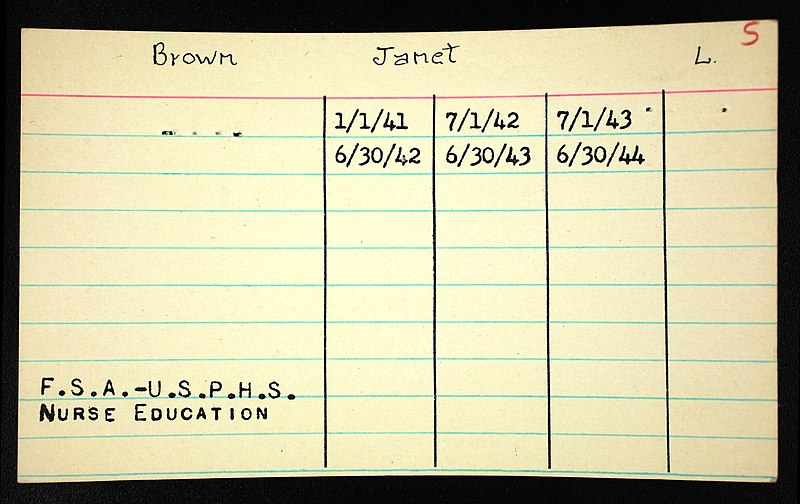 S
Brown Janet L.
1/1/41 7/1/42 7/1/43
6/30/42 6/30/43 6/30/44
F.S.A.-U.S.P.H.S.
NURSE EDUCATION